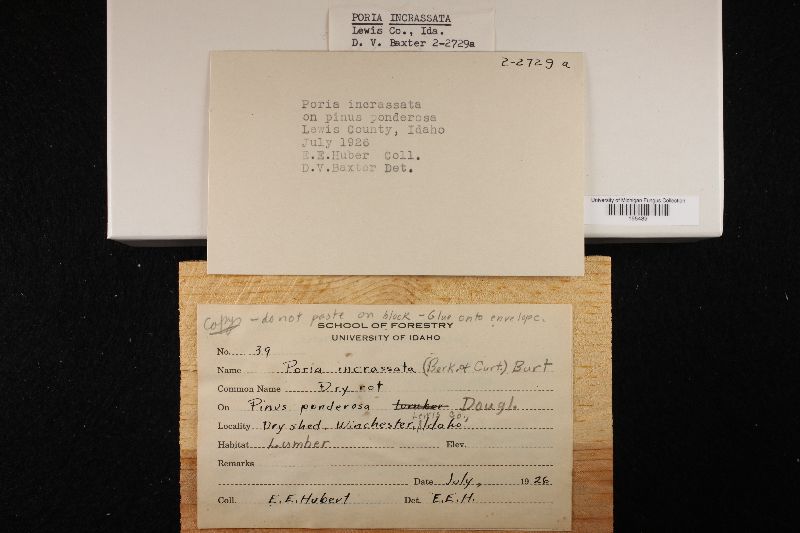 PORIA INCRASSATA
Lewis Co., Ida.
D. V. Baxter 2-2729a
2-2729 a
Poria incrassata
on pinus ponderosa
Lewis County, Idaho
July 1926
E.E.Huber Coll.
D.V.Baxter Det.
University of Michigan Fungus Collection
Copy - do not paste on block - Glue onto envelope.
SCHOOL OF FORESTRY
UNIVERSITY OF IDAHO
No. 39
Name Poria incrassata (Berk. & Curt.) Burt
Common Name Dry rot
On Pinus ponderosa lumber Dougl.
Lewis Co,
Locality Dry shed. Winchester, Idaho
Habitat Lumber Elev.
Remarks
Date July, 1926
Coll. E.E. Hubert Det. E.E.H.